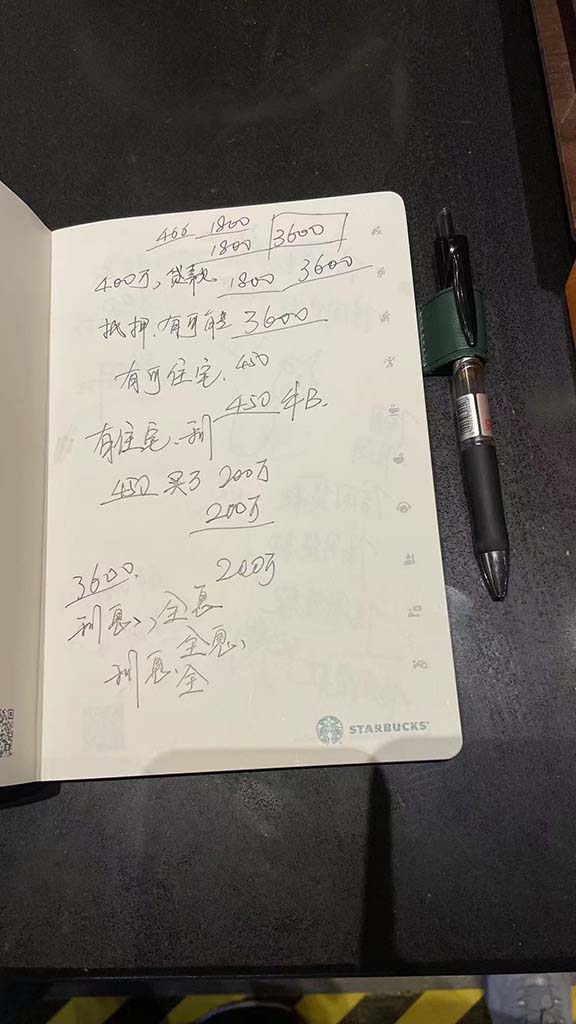 466 1800
1800 3600
400万、贷款 1800 3600
抵押、有可能 3600
有可住宅、450
450 牟B.
有住宅、利
450 买了 200万
200万
3600. 200万
利息、全息
利息、全息、
全
STARBUCKS